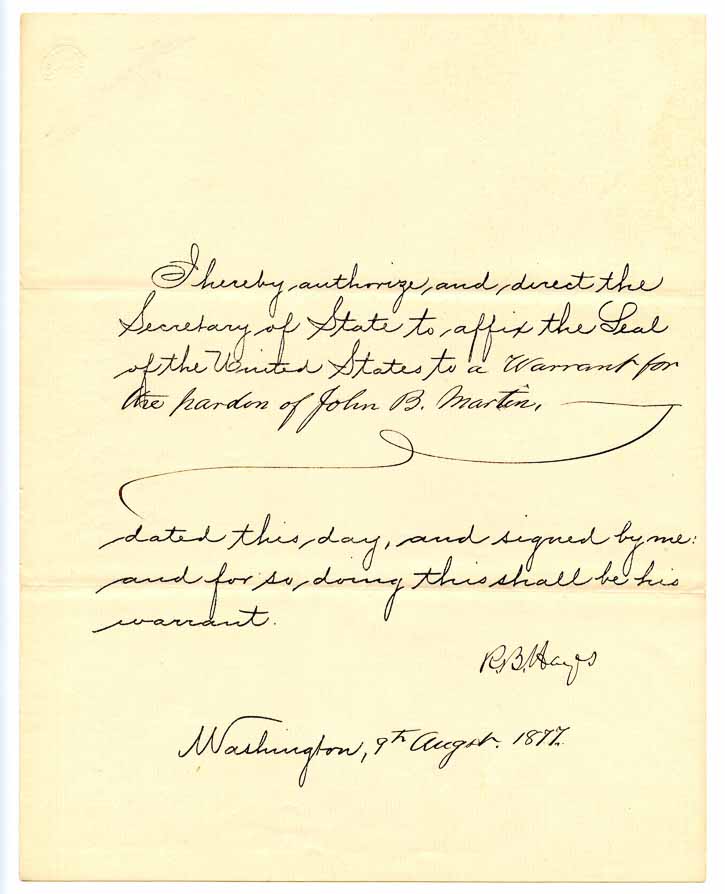 I hereby authorize and direct the
Secretary of State to affix the Seal
of the United States to a Warrant for
the pardon of John B. Martin,
dated this day, and signed by me:
and for so doing this shall be his
warrant.
R.B. Hayes
Washington, 9th Augst. 1877.